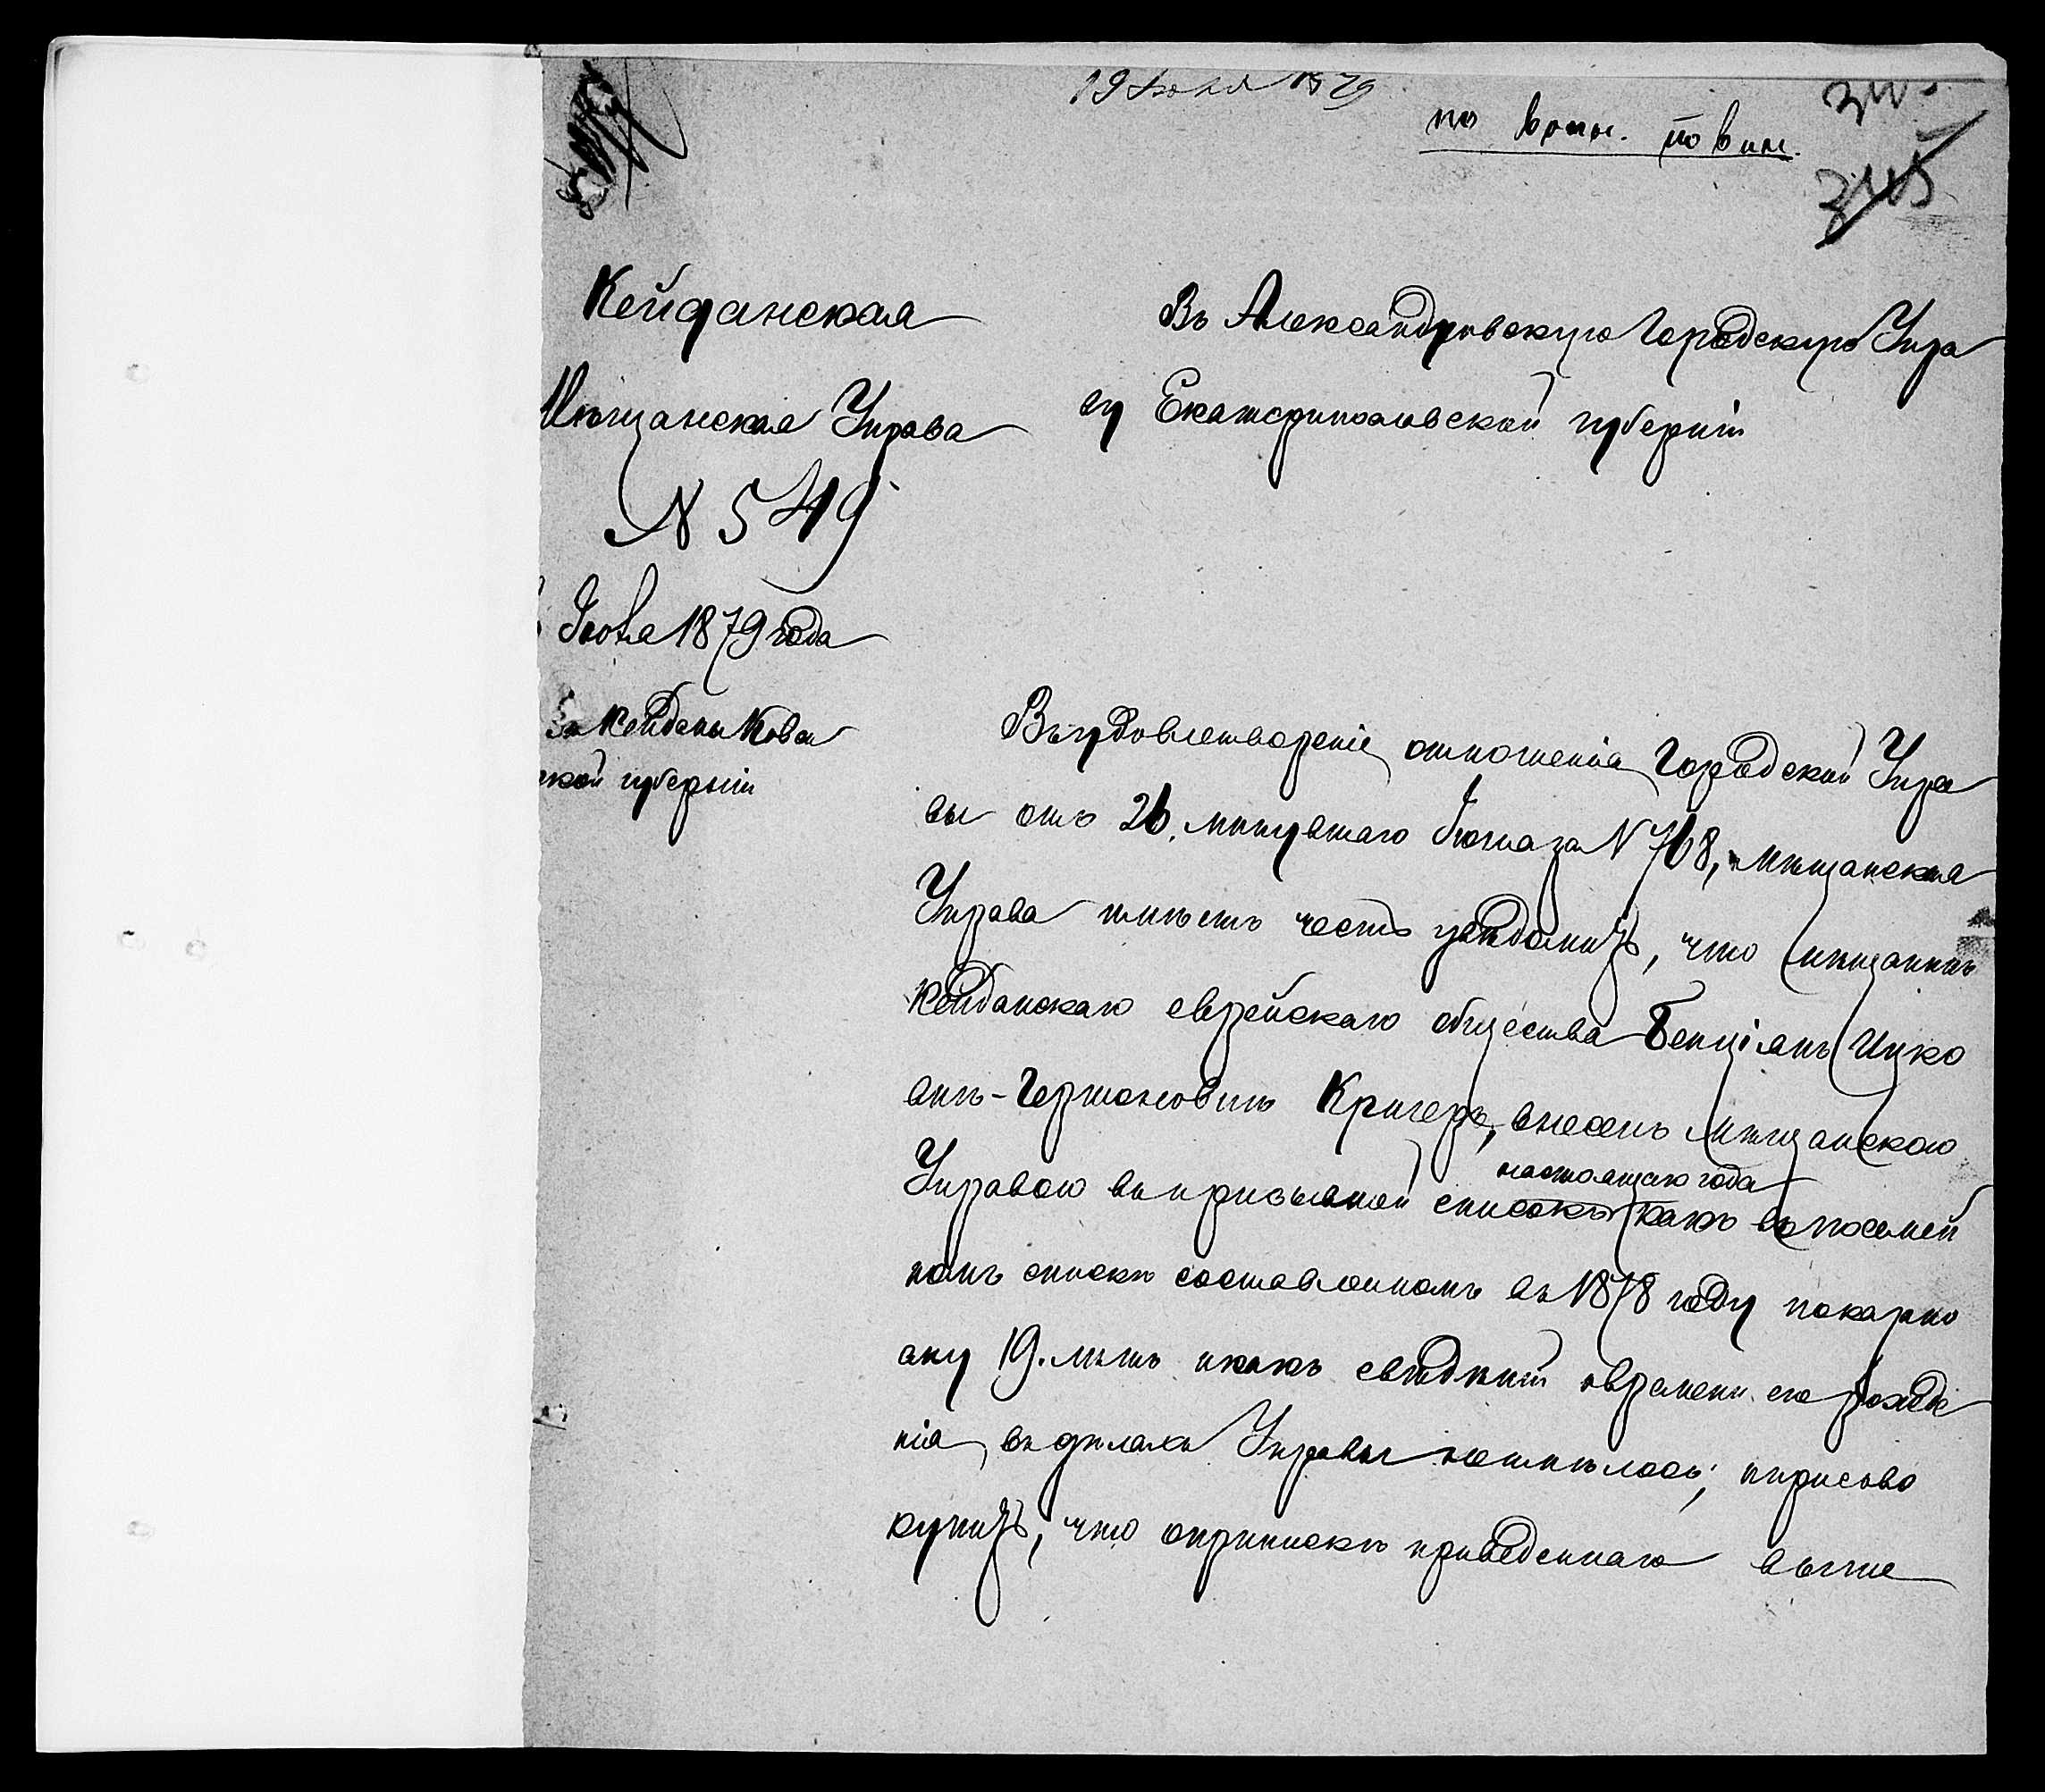 19 Июля 1879
по воин. повин.
345
Кейданская
Мѣщанская Управа
N 549
Июля 1879 года
Кейданы Ковен
ской губерніи
Въ Александровскую Городскую Упра
ву Екатеринославской губерніи
Въ удовлетвореніе отношенія Городской Упра
вы отъ 26. минувшаго Іюня за N 768, Мѣщанская
Управа имѣетъ честь увѣдомить, что мѣщанинъ
Кейданскаго еврейскаго общества Бенціянъ Ицко
вичъ-Гершоновичъ Кригеръ, внесенъ Мѣщанскою
настоящаго года
Управою въ призывной списокъ какъ въ посемей
номъ списки составленномъ въ 1878 году показано
ему 19. лѣтъ и какъ свѣдѣній о времени его рожде
нія, въ дѣлахъ Управы не имѣлось; и присово
купить, что о припискѣ приведеннаго выше